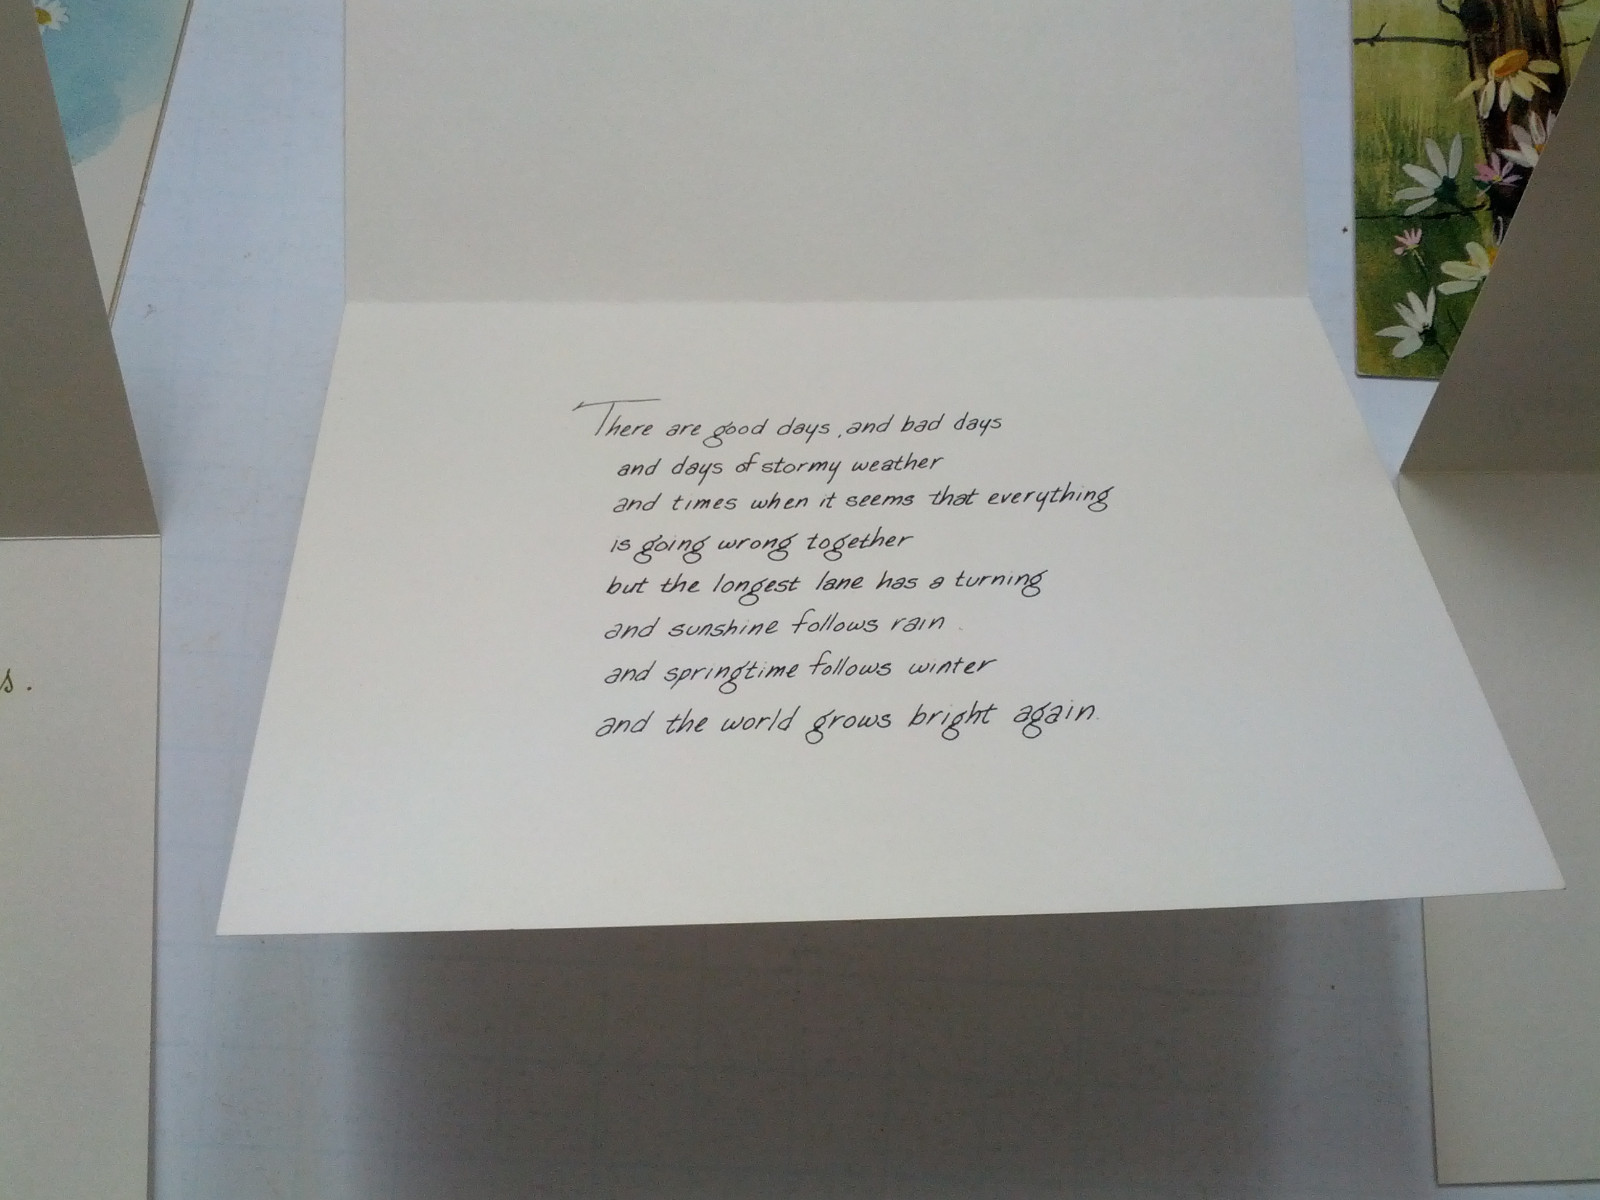 There are good days, and bad days
and days of stormy weather
and times when it seems that everything
is going wrong together
but the longest lane has a turning
and sunshine follows rain
and springtime follows winter
and the world grows bright again.
s.